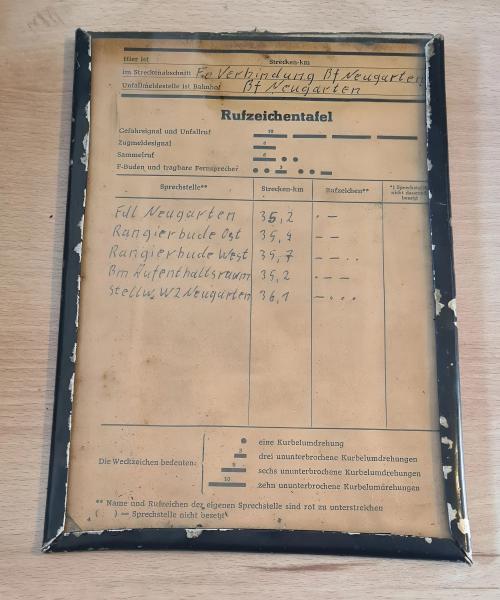 Hier ist Strecken-km
im Streckenabschnitt Fe Verbindung Bf Neugarten
Unfallmeldestelle ist Bahnhof Bf Neugarten
Rufzeichentafel
Gefahrsignal und Unfallruf 10
Zugmeldesignal 6
Sammelruf 6
F-Buden und tragbare Fernsprecher 3
Sprechstelle** Strecken-km Rufzeichen** *) Sprechstelle nicht dauernd besetzt
Fdl Neugarten 35,2 · —
Rangierbude Ost 35,4 — —
Rangierbude West 35,7 — — · ·
Bm Aufenthaltsraum 35,2 · — —
Stellw. W2 Neugarten 36,1 — · · ·
Die Weckzeichen bedeuten:
eine Kurbelumdrehung
3 drei ununterbrochene Kurbelumdrehungen
6 sechs ununterbrochene Kurbelumdrehungen
10 zehn ununterbrochene Kurbelumdrehungen
** Name und Rufzeichen der eigenen Sprechstelle sind rot zu unterstreichen
( ) — Sprechstelle nicht besetzt